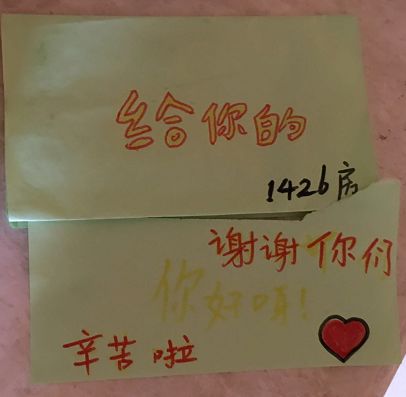 给你的
1426房
谢谢你们
你好呀!
辛苦啦